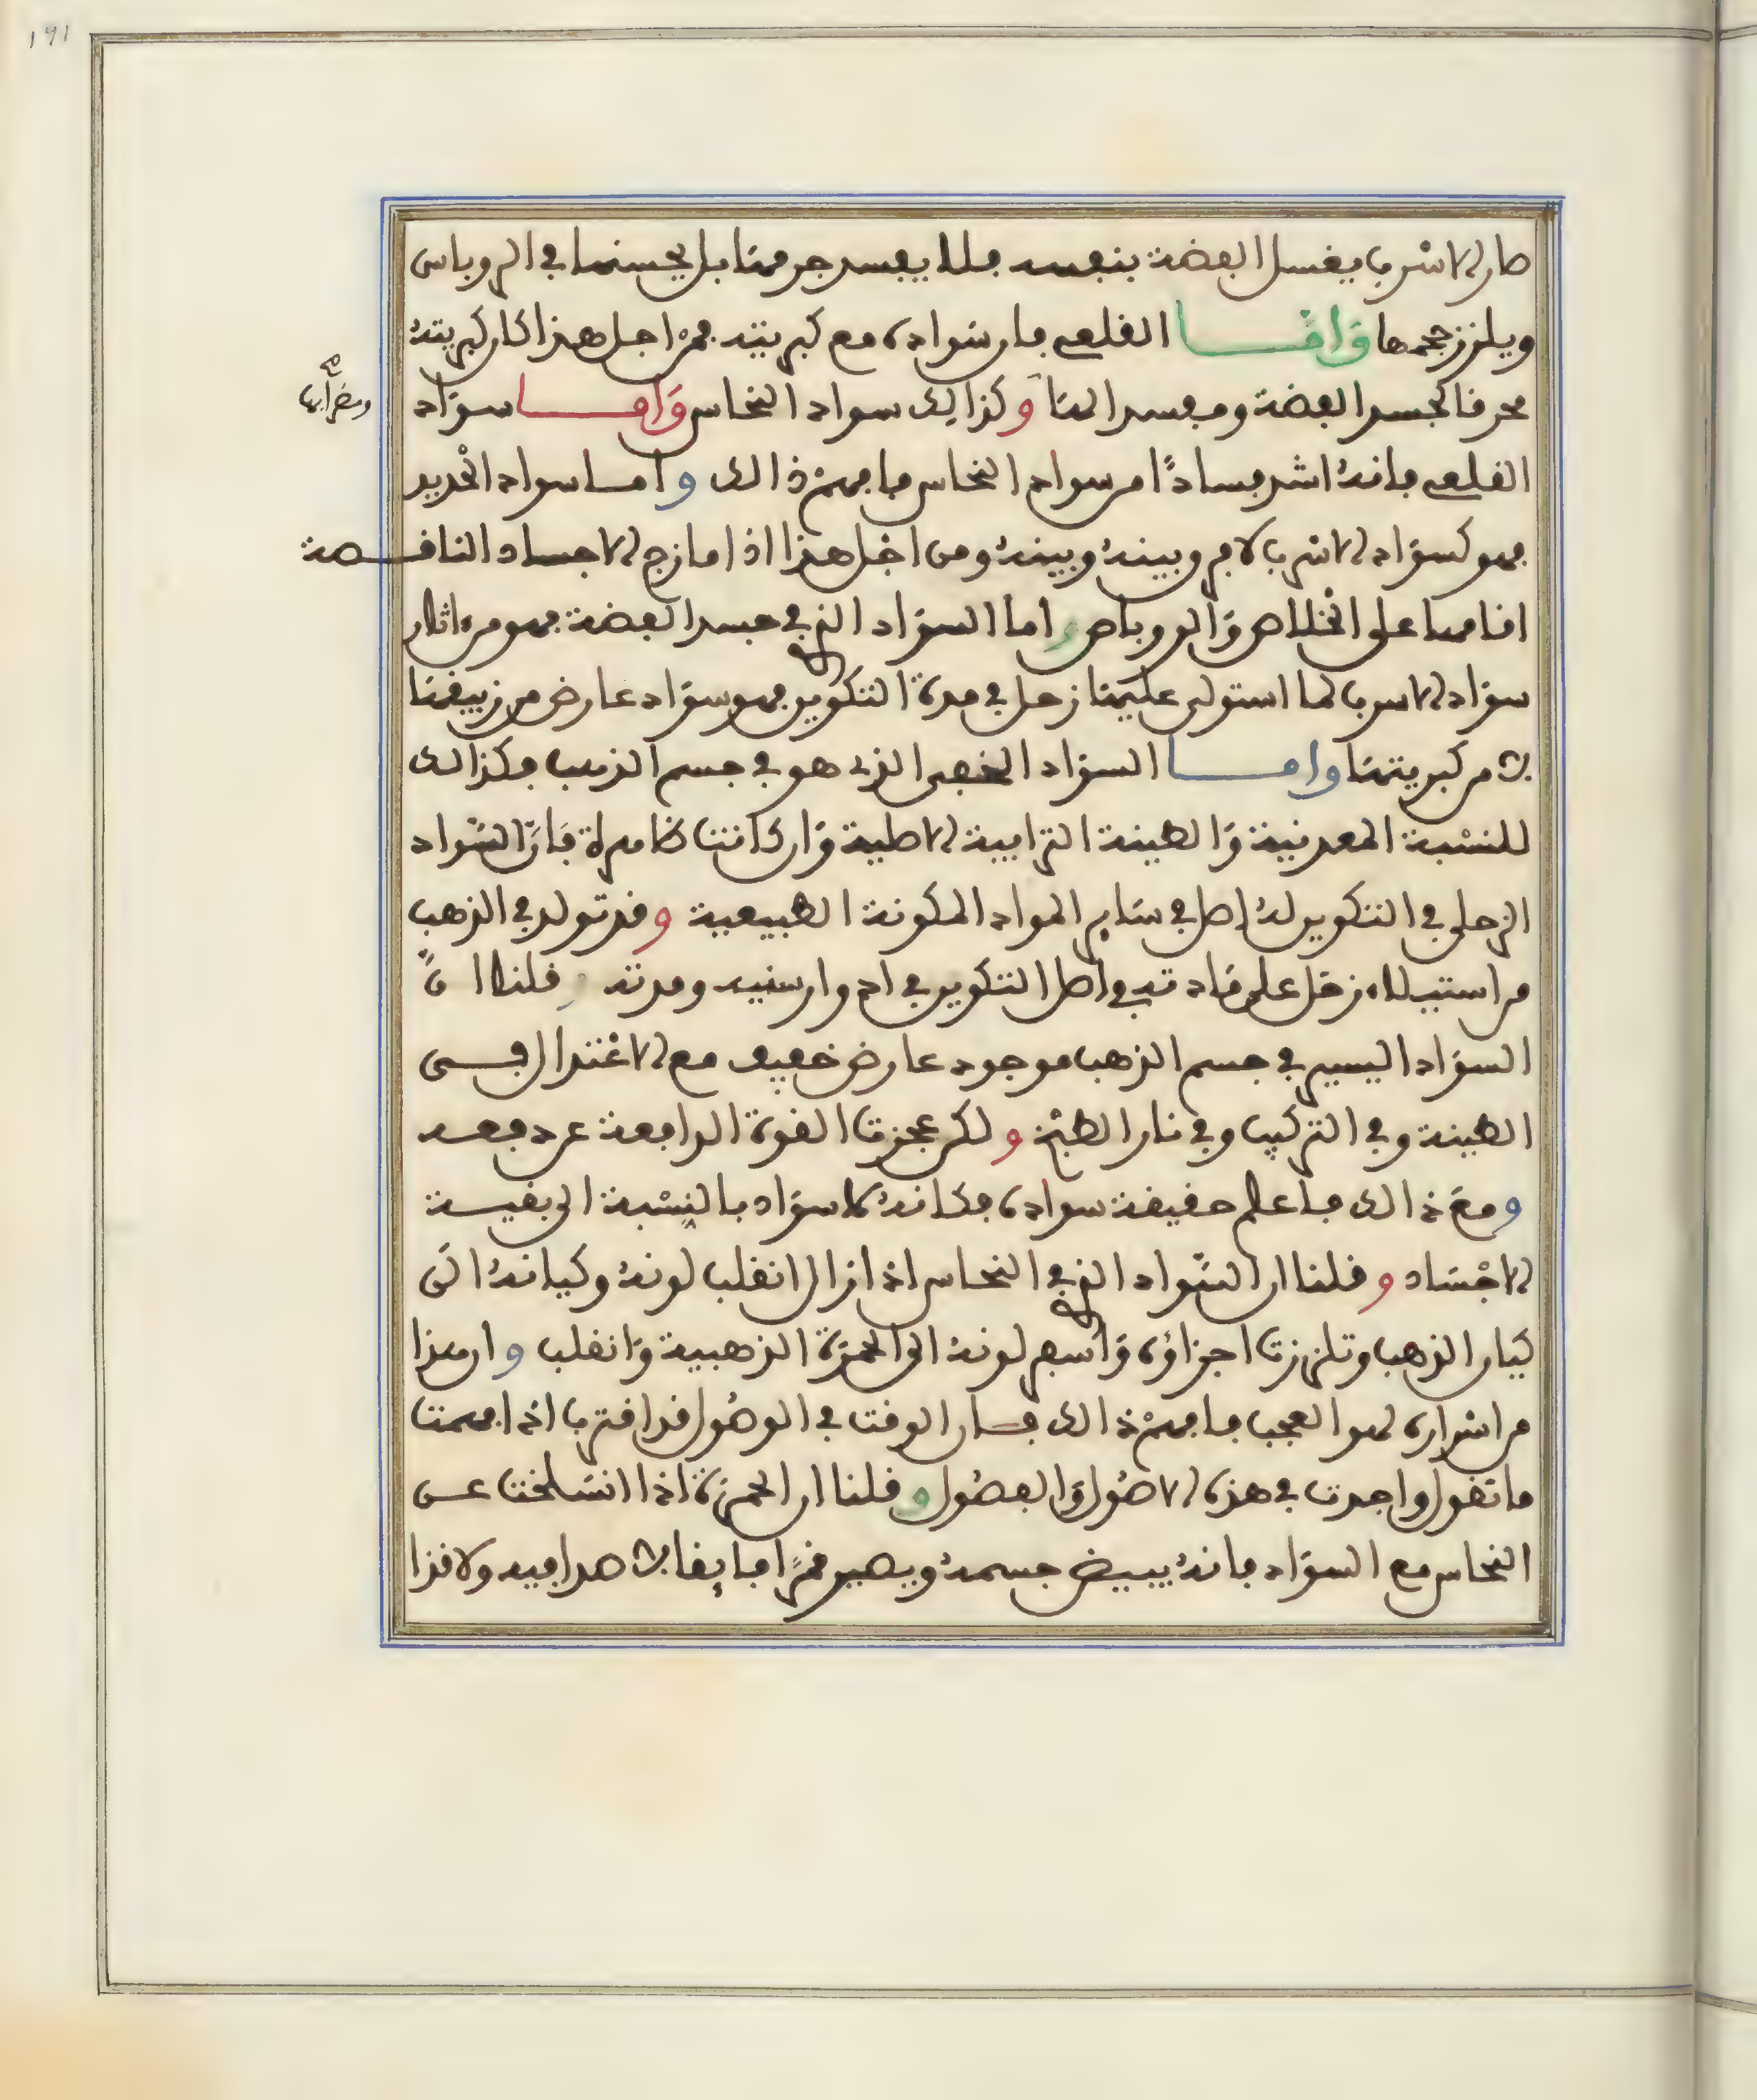 ١٩١
صار الاسرب يغسل الفضة بنفسه فلا يفسد جرمها بل يحسنها في الروباس
ويلزز حجمها وَامَّا القلعي فان سواده مع كبريته فمن اجل هذا كان كبريته
محرقا لجسد الفضة ومفسدا لها وكذالك سواد النحاس وَاما سوَاد
القلعي فانهُ اشد فسادًا من سواد النحاس فافهمْ ذالك واما سواد الحْديد
فهو كسوَاد الاسرب لا فرق بينهُ وبينهُ ومن اجْل هذا اذا مازج الاجساد الناقصة
اقامها على الخْلاص وَالروباص واما السوَاد الذي في جسد الفضة فهو من اثار
سوَاد الاسرب لما استولى عليها زحل في مدة التكوين فهو سوَاد عارض من زيبقها
لا من كبريتها واما السوَاد الخفي الذي هو في جسم الذهب فكذالك
للنسْبة المعدنية وَالطينة الترابية الاصلية وَان كانت طاهرة فَانَّ السَّواد
الزحلي في التكوين لهُ اصل في سَاير المواد المكونة الطبيعية وقد تولد في الذهب
من استيلاء زحَل على مَادته في اصل التكوين في ادوار سنيه ومدته وقلنا انَّ
السوَاد اليسير في جسم الذهب موجود عارض خفيف مع الاعْتدال في
الطينة وفي التركيب وفي نار الطبْخ ولكن عجزت القوة الدافعة عن دفعه
ومعَ ذالك فاعلم حقيقة سواده فكانهُ لا سوَاد بالنِسْبة الى بقية
الاجْسَاد وقلنا ان السَّواد الذي في النحاس اذا زال انقلب لونهُ وكيانهُ الَى
كيان الذهب وتلززت اجزاؤه وَاسفر لونهُ الى الحمرَة الذهبية وَانقلب وان هذا
من اسْراره لهو العجب فافهمْ ذالك فان الوقت في الوصُول قد اقترب اذا فهمت
ما نقول واجدت في هذه الاصُول وَالفصُول وقلنا ان الحمرَة اذا انسَلخت عن
النحاس مع السوَاد فانهُ يبيض جسمهُ ويصير قمرًا فايقا لا صدا فيه ولا قذا